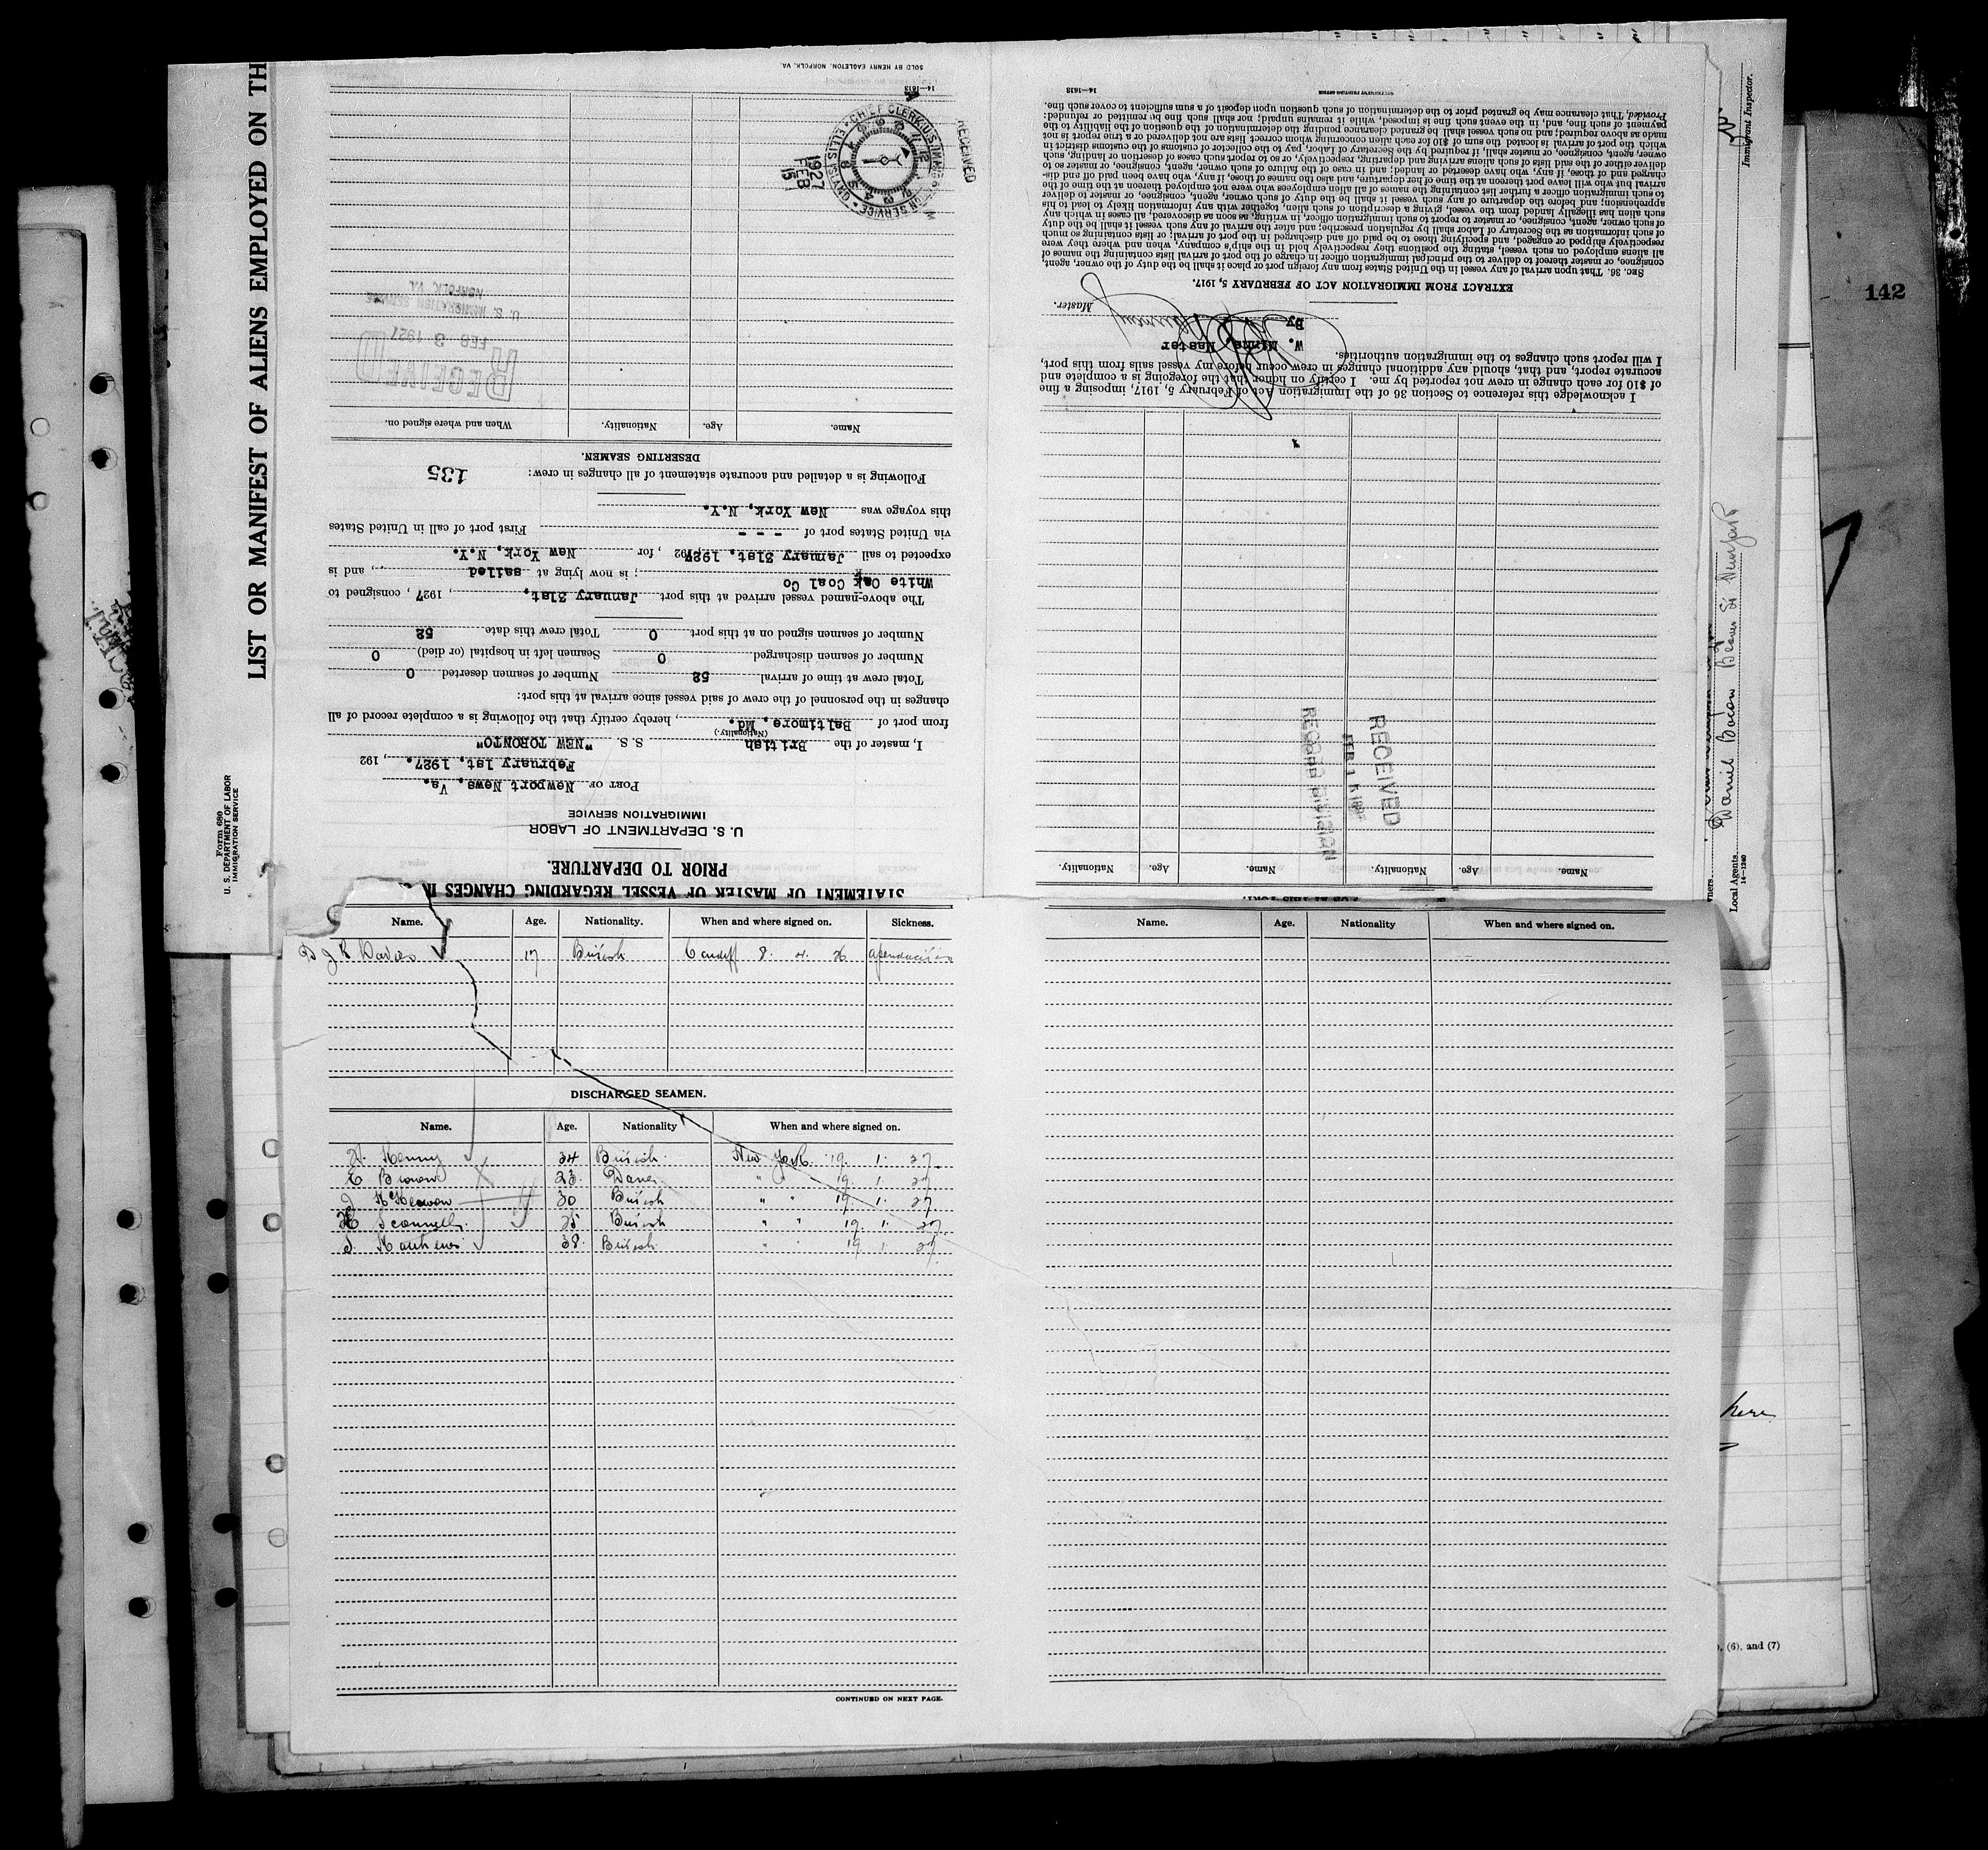 LIST OR MANIFEST OF ALIENS EMPLOYED ON TH
Form 680
U. S. DEPARTMENT OF LABOR
IMMIGRATION SERVICE
STATEMENT OF MASTER OF VESSEL REGARDING CHANGES I
PRIOR TO DEPARTURE.
U. S. DEPARTMENT OF LABOR
IMMIGRATION SERVICE
PORT OF Newport News, Va.
February 1st, 1927. , 192
I, master of the British S. S. "NEW TORONTO"
(Nationality.)
from port of Baltimore, Md. , hereby certify that the following is a complete record of all
changes in the personnel of the crew of said vessel since arrival at this port:
Total crew at time of arrival 52 Number of seamen deserted 0
Number of seamen discharged 0 Seamen left in hospital (or died) 0
Number of seamen signed on at this port 0 Total crew this date 52
The above-named vessel arrived at this port January 31st, , 1927 , consigned to
White Oak Coal Co ; is now lying at sailed , and is
expected to sail January 31st, 1927 192 , for New York, N.Y.
via United States port of - - - First port of call in United States
this voyage was New York, N.Y.
Following is a detailed and accurate statement of all changes in crew: 135
DESERTING SEAMEN.
Name. Age. Nationality. When and where signed on.
RECEIVED
FEB 3 1927
U. S. IMMIGRATION SERVICE
NORFOLK, VA.
RECEIVED
CHIEF CLERK U.S. IMMIGRATION SERVICE • ELLIS ISLAND •
1927
FEB
15
14—1613
SOLD BY HENRY EAGLETON, NORFOLK, VA.
Name. Age. Nationality. Name. Age. Nationality.
RECEIVED
RECORD DIVISION
I acknowledge this reference to Section 36 of the Immigration Act of February 5, 1917, imposing a fine
of $10 for each change in crew not reported by me. I certify on honor that the foregoing is a complete and
accurate report, and that, should any additional changes in crew occur before my vessel sails from this port,
I will report such changes to the immigration authorities.
W. Minns, Master
By
Master.
EXTRACT FROM IMMIGRATION ACT OF FEBRUARY 5, 1917.
Sec. 36. That upon arrival of any vessel in the United States from any foreign port or place it shall be the duty of the owner, agent,
consignee, or master thereof to deliver to the principal immigration officer in charge of the port of arrival lists containing the names of
all aliens employed on such vessel, stating the positions they respectively hold in the ship's company, when and where they were
respectively shipped or engaged, and specifying those to be paid off and discharged in the port of arrival; or lists containing so much
of such information as the Secretary of Labor shall by regulation prescribe; and after the arrival of any such vessel it shall be the duty
of such owner, agent, consignee, or master to report to such immigration officer, in writing, as soon as discovered, all cases in which any
such alien has illegally landed from the vessel, giving a description of such alien, together with any information likely to lead to his
apprehension; and before the departure of any such vessel it shall be the duty of such owner, agent, consignee, or master to deliver
to such immigration officer a further list containing the names of all alien employees who were not employed thereon at the time of the
arrival but who will leave port thereon at the time of her departure, and also the names of those, if any, who have been paid off and dis-
charged and of those, if any, who have deserted or landed; and in case of the failure of such owner, agent, consignee, or master so to
deliver either of the said lists of such aliens arriving and departing, respectively, or so to report such cases of desertion or landing, such
owner, agent, consignee, or master shall, if required by the Secretary of Labor, pay to the collector of customs of the customs district in
which the port of arrival is located the sum of $10 for each alien concerning whom correct lists are not delivered or a true report is not
made as above required; and no such vessel shall be granted clearance pending the determination of the question of the liability to the
payment of such fine, and, in the event such fine is imposed, while it remains unpaid; nor shall such fine be remitted or refunded:
Provided, That clearance may be granted prior to the determination of such question upon deposit of a sum sufficient to cover such fine.
14—1613
GOVERNMENT PRINTING OFFICE
Immigrant Inspector.
142
Daniel Bacon
Local Agents
14—1240
Name. Age. Nationality. When and where signed on. Sickness.
D J R Davies 17 British Cardiff 8. 11. 26
DISCHARGED SEAMEN.
Name. Age. Nationality When and where signed on.
Kenny 34 British. New York. 19. 1. 27.
E Brown 23. Dane. " " 19. 1. 27
J McKeown 30 British " " 19. 1. 27
H Scannell. 25 British " " 19. 1. 27
S. Mathews 38. British " " 19. 1. 27.
CONTINUED ON NEXT PAGE.
Name. Age. Nationality When and where signed on.
here
, (6), and (7)